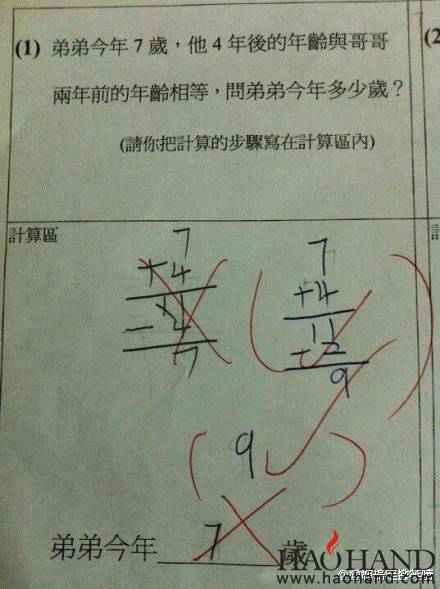 (1) 弟弟今年 7 歲，他 4 年後的年齡與哥哥
兩年前的年齡相等，問弟弟今年多少歲？
(請你把計算的步驟寫在計算區內)
(2
計算區
7
+4
11
-4
7
7
+4
11
2
9
(9)
弟弟今年 7 歲
HAOHAND
www.haohand.com